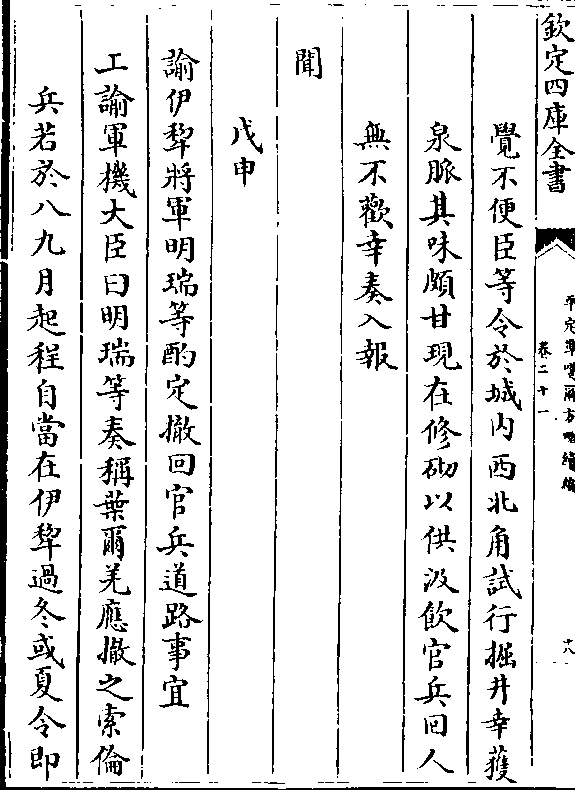 欽定四庫全書
平定準噶爾方略續編
卷二十一
十八
覺不便臣等令於城内西北角試行掘井幸獲
泉脈其味頗甘現在修砌以供汲飲官兵回人
無不歡幸奏入報
聞
戊申
諭伊犂將軍明瑞等酌定撤回官兵道路事宜
工諭軍機大臣曰明瑞等奏稱葉爾羌應撤之索倫
兵若於八九月起程自當在伊犂過冬或夏令即